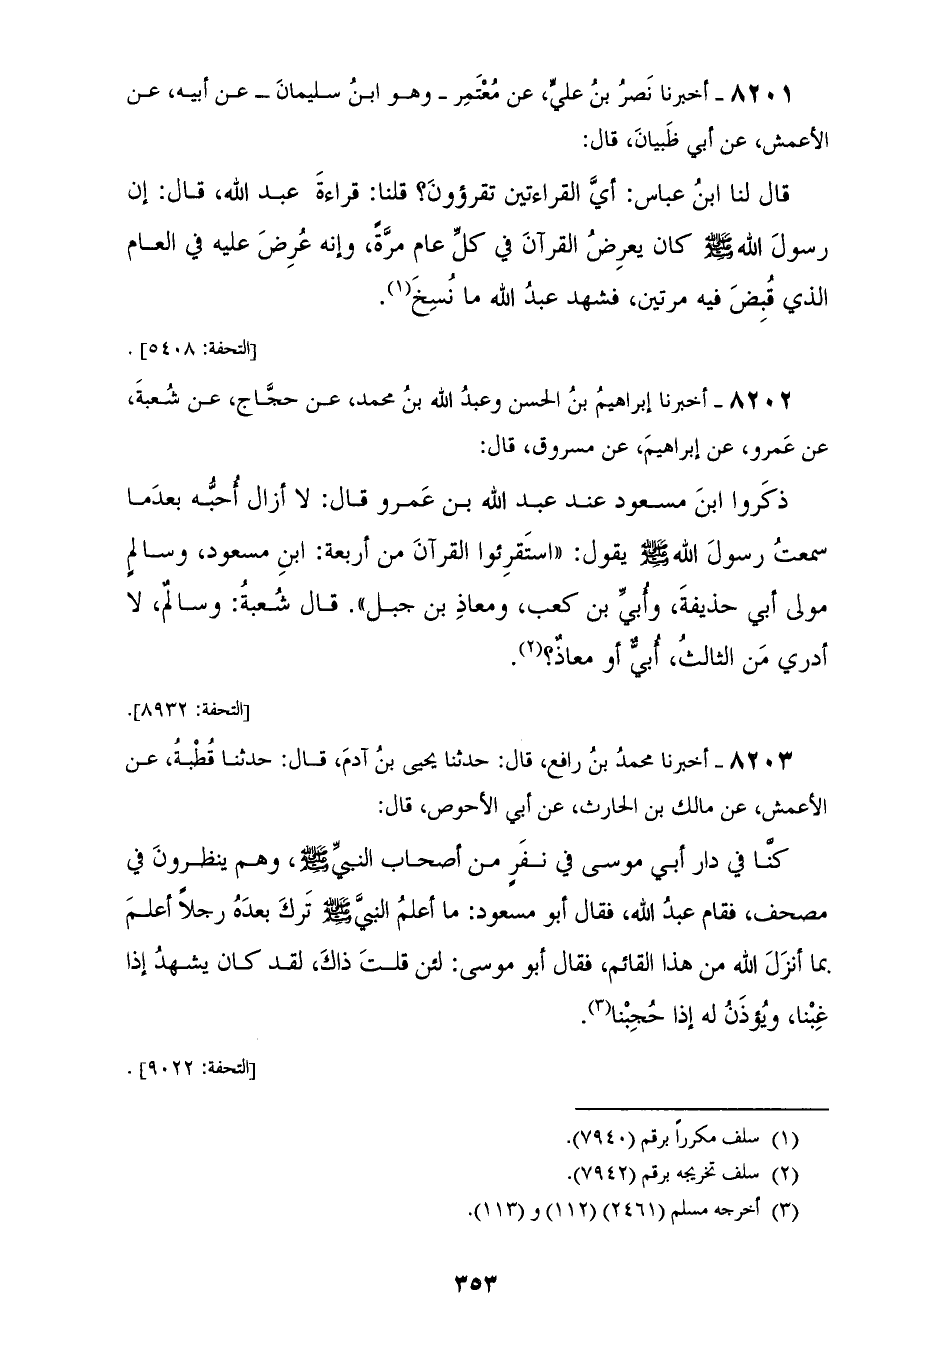 ٨٢٠١ ـ أخبرنا نَصرُ بنُ عليٍّ، عن مُعْتَمِر ـ وهو ابنُ سليمانَ ـ عن أبيه، عن
الأعمش، عن أبي ظَبيانَ، قال:
قال لنا ابنُ عباس: أيَّ القراءتين تقرؤونَ؟ قلنا: قراءةَ عبد الله، قال: إن
رسولَ الله ﷺ كان يعرِضُ القرآنَ في كلِّ عام مرَّةً، وإنه عُرِضَ عليه في العام
الذي قُبِضَ فيه مرتين، فشهد عبدُ الله ما نُسِخَ(١).
[التحفة: ٥٤٠٨] .
٨٢٠٢ ـ أخبرنا إبراهيمُ بنُ الحسن وعبدُ الله بنُ محمد، عن حجَّاج، عن شُعبةَ،
عن عَمرو، عن إبراهيمَ، عن مسروق، قال:
ذكَروا ابنَ مسعود عند عبد الله بن عَمرو قال: لا أزال أُحبُّه بعدَما
سمعتُ رسولَ الله ﷺ يقول: «استَقرِئوا القرآنَ من أربعة: ابنِ مسعود، وسالمٍ
مولى أبي حذيفةَ، وأُبيِّ بن كعب، ومعاذِ بن جبل». قال شُعبةُ: وسالمٌ، لا
أدري مَن الثالثُ، أُبيٌّ أو معاذٌ؟(٢).
[التحفة: ٨٩٣٢].
٨٢٠٣ ـ أخبرنا محمدُ بنُ رافع، قال: حدثنا يحيى بنُ آدمَ، قال: حدثنا قُطْبةُ، عن
الأعمش، عن مالك بن الحارث، عن أبي الأحوص، قال:
كنَّا في دار أبي موسى في نفَرٍ من أصحاب النبيِّ ﷺ، وهم ينظرونَ في
مصحف، فقام عبدُ الله، فقال أبو مسعود: ما أعلمُ النبيَّ ﷺ تَركَ بعدَهُ رجلاً أعلمَ
بما أنزَلَ الله من هذا القائم، فقال أبو موسى: لئن قلتَ ذاكَ، لقد كان يشهدُ إذا
غِبْنا، ويُؤذَنُ له إذا حُجِبْنا(٣).
[التحفة: ٩٠٢٢] .
(١) سلف مكرراً برقم (٧٩٤٠).
(٢) سلف تخريجه برقم (٧٩٤٢).
(٣) أخرجه مسلم (٢٤٦١) (١١٢) و (١١٣).
٣٥٣